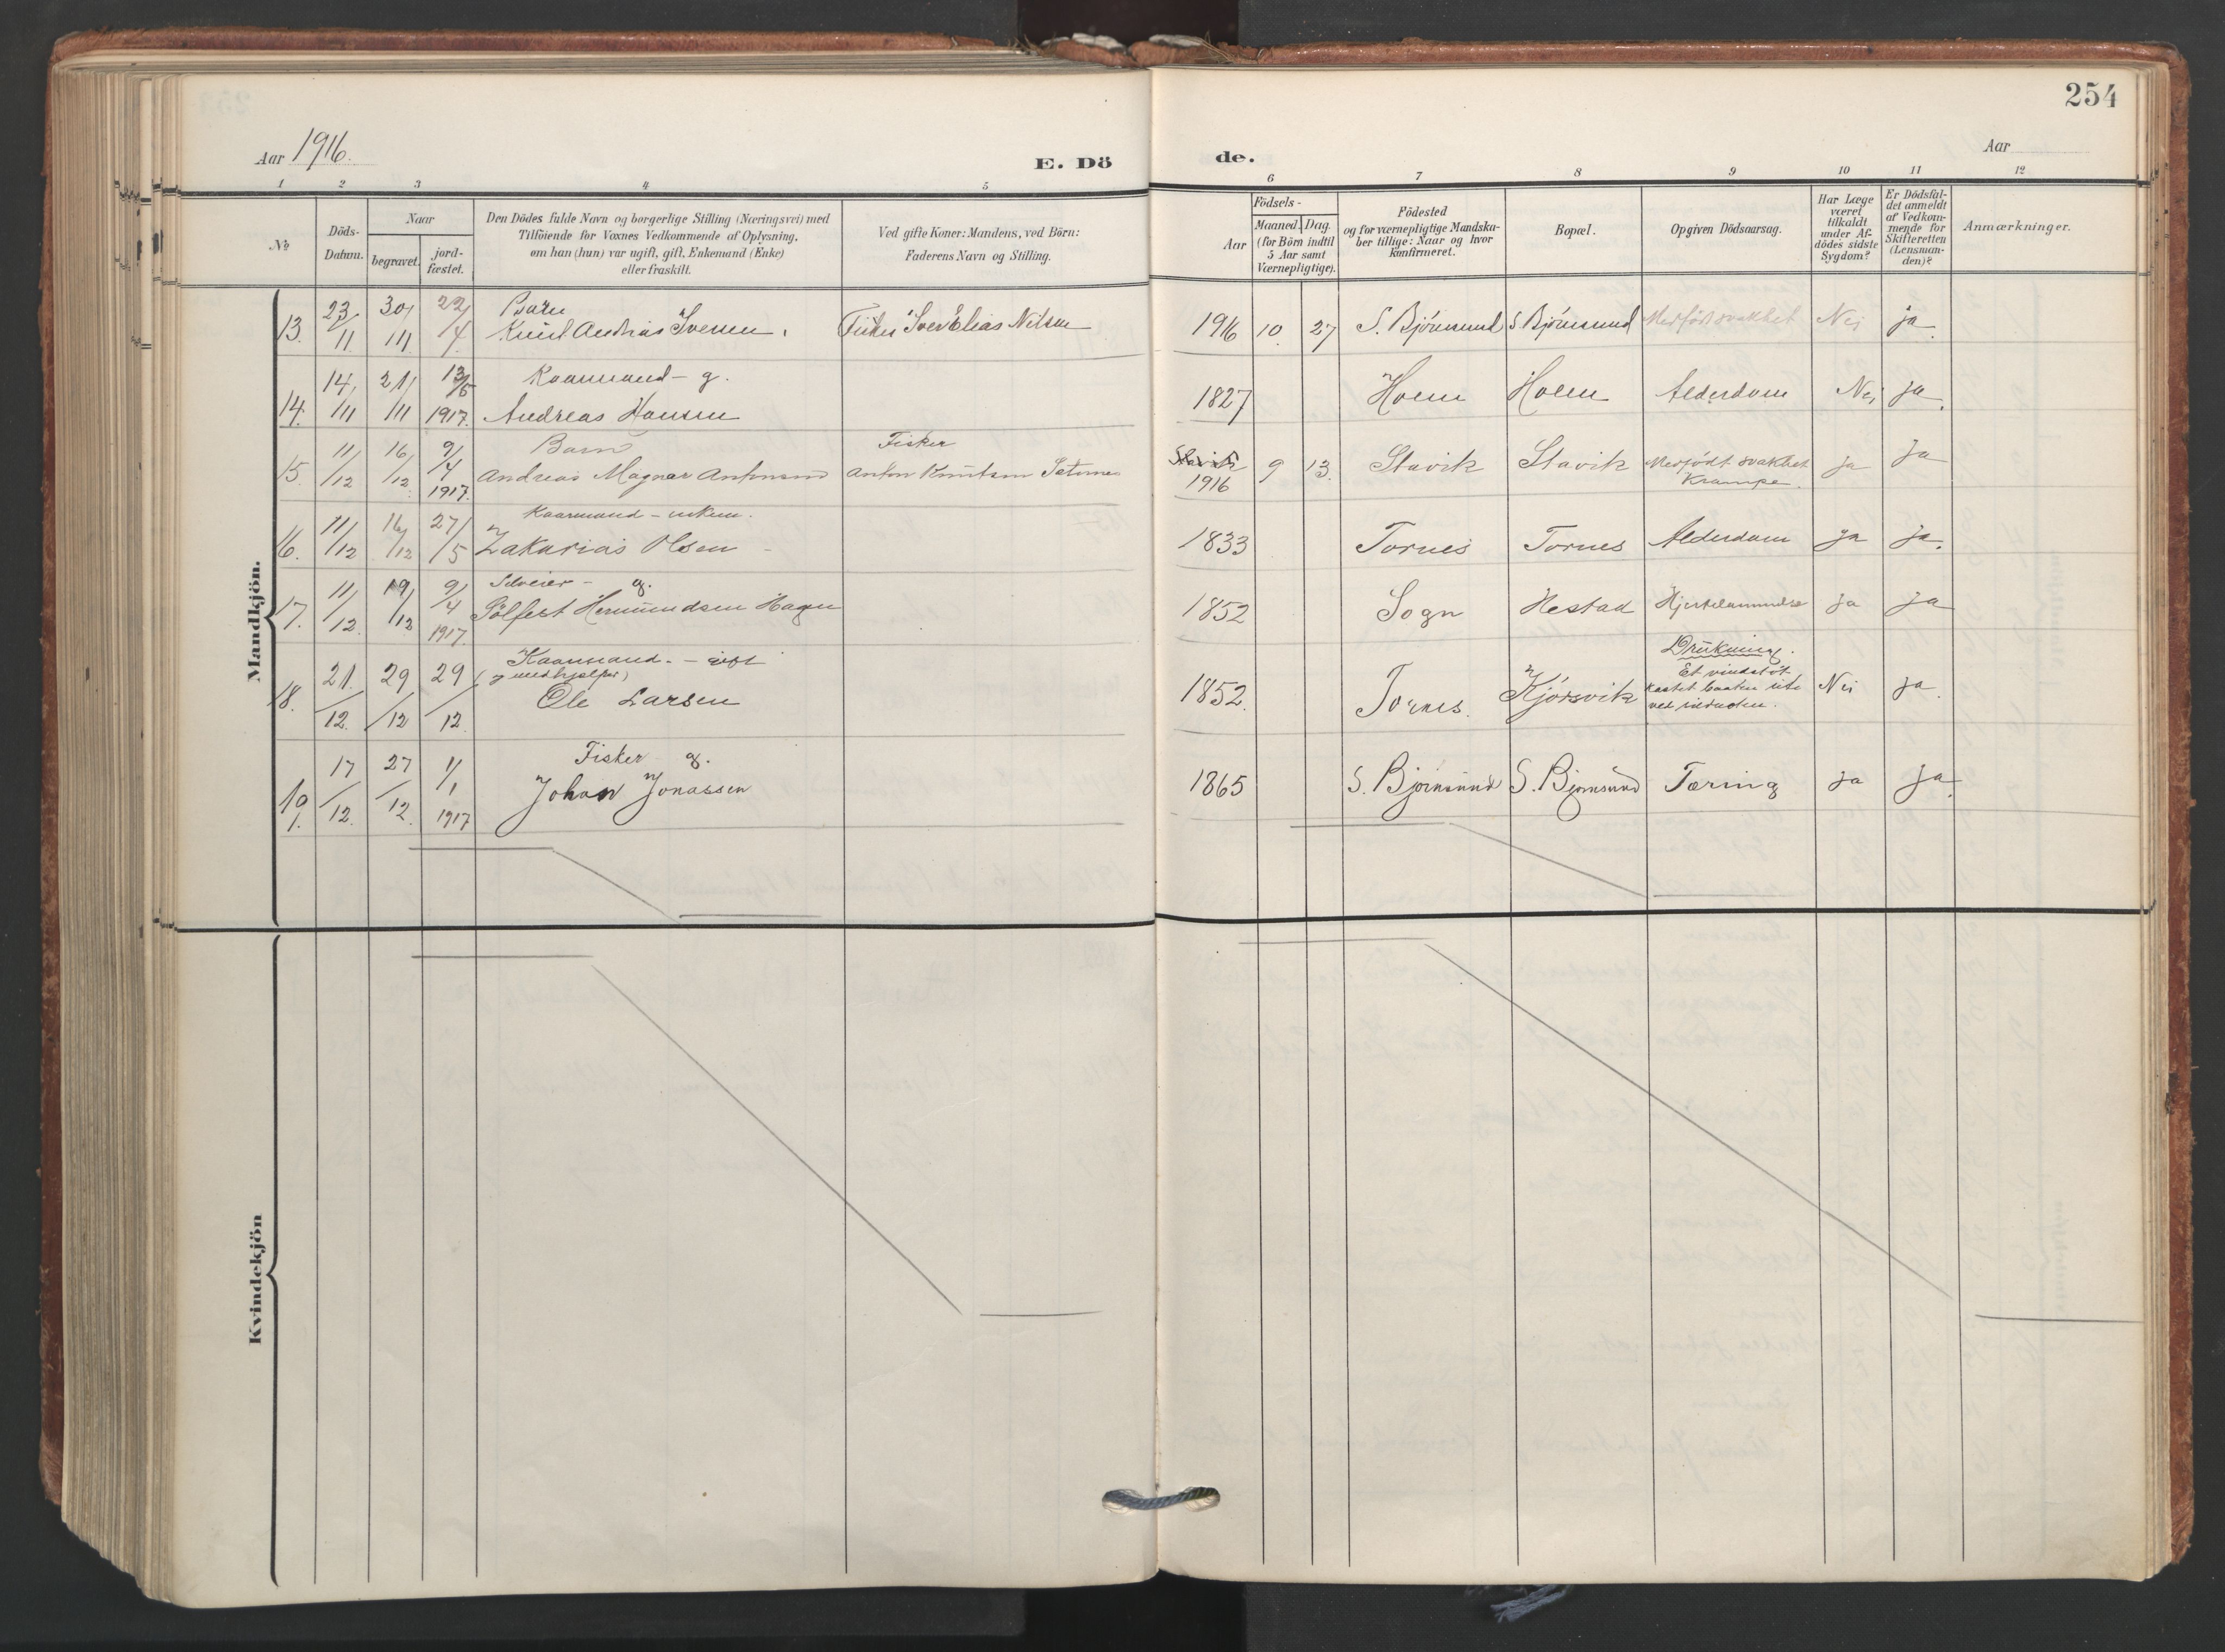 254
Aar 1916.
E. Dö
de.
Aar
1 2 3 4 5 6 7 8 9 10 11 12
No
Döds-
Datum.
Naar
begravet.
jord-
fæstet.
Den Dödes fulde Navn og borgerlige Stilling (Næringsvei) med
Tilföiende for Voxnes Vedkommende af Oplysning,
om han (hun) var ugift, gift, Enkemand (Enke)
eller fraskilt.
Ved gifte Koner: Mandens, ved Börn:
Faderens Navn og Stilling.
Födsels-
Aar
Maaned. Dag.
(for Börn indtil
5 Aar samt
Værnepligtige).
Födested
og for værnepligtige Mandska-
ber tillige: Naar og hvor
konfirmeret.
Bopæl.
Opgiven Dödsaarsag.
Har Læge
været
tilkaldt
under Af-
dödes sidste
Sygdom?
Er Dödsfal-
det anmeldt
af Vedkom-
mende for
Skifteretten
(Lensman-
den)?
Anmærkninger.
Mandkjön.
13. 23/11 30/11 22/4 Barn
Knut Andreas Iversen. Fisker Iver Elias Nilsen 1916 10. 27 S. Björnsund S. Björnsund Medfödt svakhet Nei ja.
14. 14/11 21/11 13/5 1917. Kaarmand - g.
Andreas Hansen 1827 Holm Holm Alderdom Nei ja.
15. 11/12 16/12 9/4 1917. Barn
Andreas Magnar Antonsen Fisker
Anton Knutsen 1916 9 13. Stavik Stavik Medfödt svakhet
Krampe. ja ja
16. 11/12 16/12 27/5 Kaarmand - enkem.
Zakarias Olsen - 1833 Tornes Tornes Alderdom ja ja.
17. 11/12. 19/12 9/4 1917. Selveier - g.
Sölfest Hermundsen Hagen 1852 Sogn Hestad ja ja
18. 21/12. 29/12 29/12 Kaarmand. - gift
(medhjelper)
Ole Larsen 1852. Tornes. Kjörsvik Drukning.
Et vindstöt
kastet baaten
ved Nei ja.
19. 17/12. 27/12. 1/1 1917 Fisker - g.
Johan Jonassen 1865 S. Björnsund S. Björnsund Tæring ja ja.
Kvindekjön